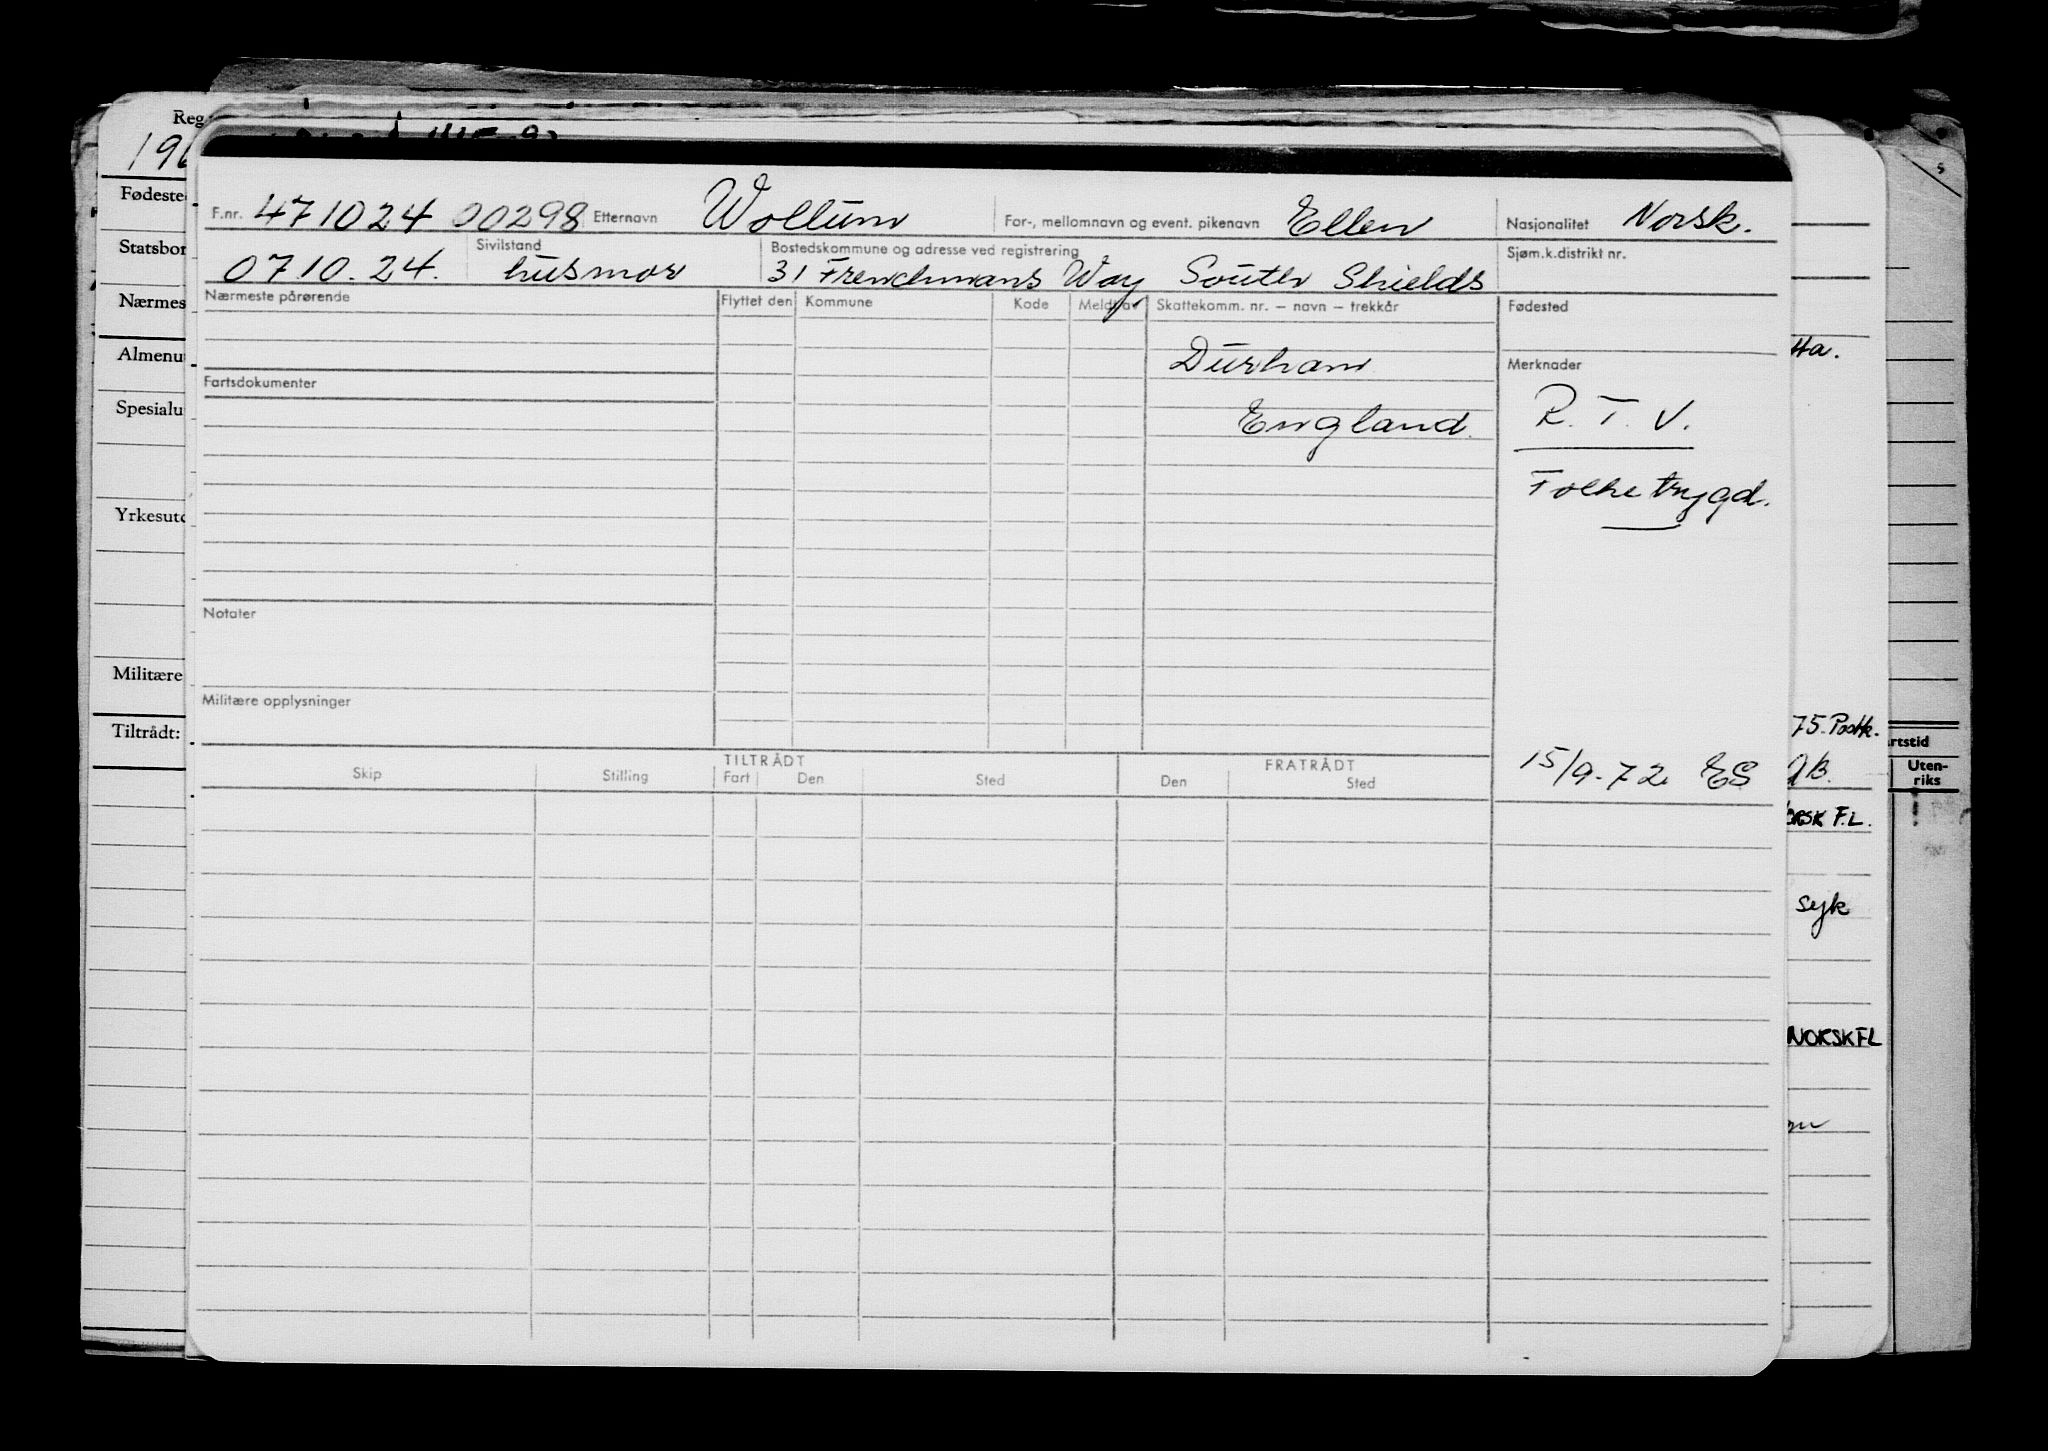 Reg
196
Fødeste
Statsbor
Nærmes
Almenu
Spesialu
Yrkesutd
Militære
Tiltrådt:
F.nr. 471024 00298 Etternavn Wollum For-, mellomnavn og event. pikenavn Ellen Nasjonalitet Norsk.
Sivilstand Bostedskommune og adresse ved registrering Sjøm.k.distrikt nr.
07.10.24. husmor 31 Frenchmans Way South Shields
Nærmeste pårørende Flyttet den Kommune Kode Meldt av Skattekomm. nr. – navn – trekkår Fødested
Durham
Merknader
Fartsdokumenter
England.
R. T. V.
Folketrygd.
Notater
Militære opplysninger
15/9-72 ES
TILTRÅDT FRATRÅDT
Skip Stilling Fart Den Sted Den Sted
tta.
75. Postk.
rtstid
Uten-
riks
ORSK F.L.
syk
NORSK FL
s